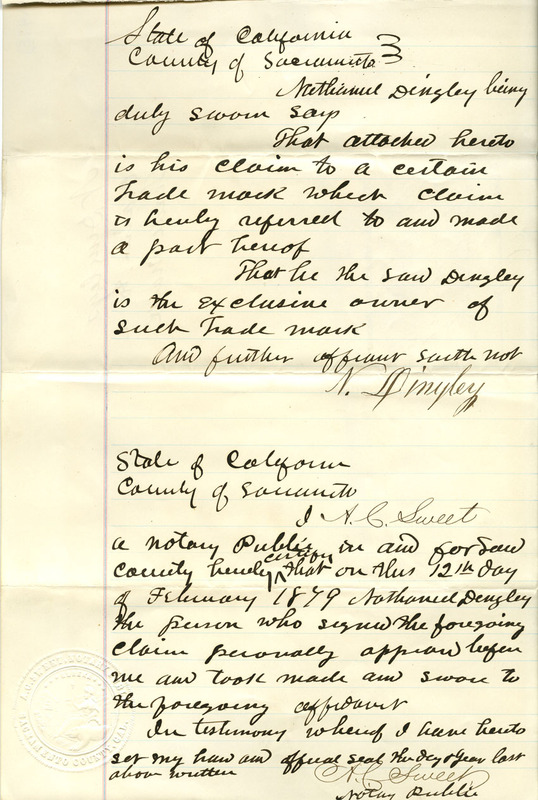 State of California
County of Sacramento
Nathaniel Dingley being
duly sworn says
That attached hereto
is his claim to a certain
trade mark which claim
is hereby referred to and made
a part hereof
That he the said Dingley
is the exclusive owner of
such trade mark
And further affiant saith not
N. Dingley
State of California
County of Sacramento
I A. C. Sweet
a notary Public in and for said
county hereby certify that on this 12th day
of February 1879 Nathaniel Dingley
the person who signed the foregoing
claim personally appeard before
me and took made and swore to
the foregoing affidavit
In testimony whereof I have hereto
set my hand and official seal the day & year last
above written
A. C. Sweet
Notary Public